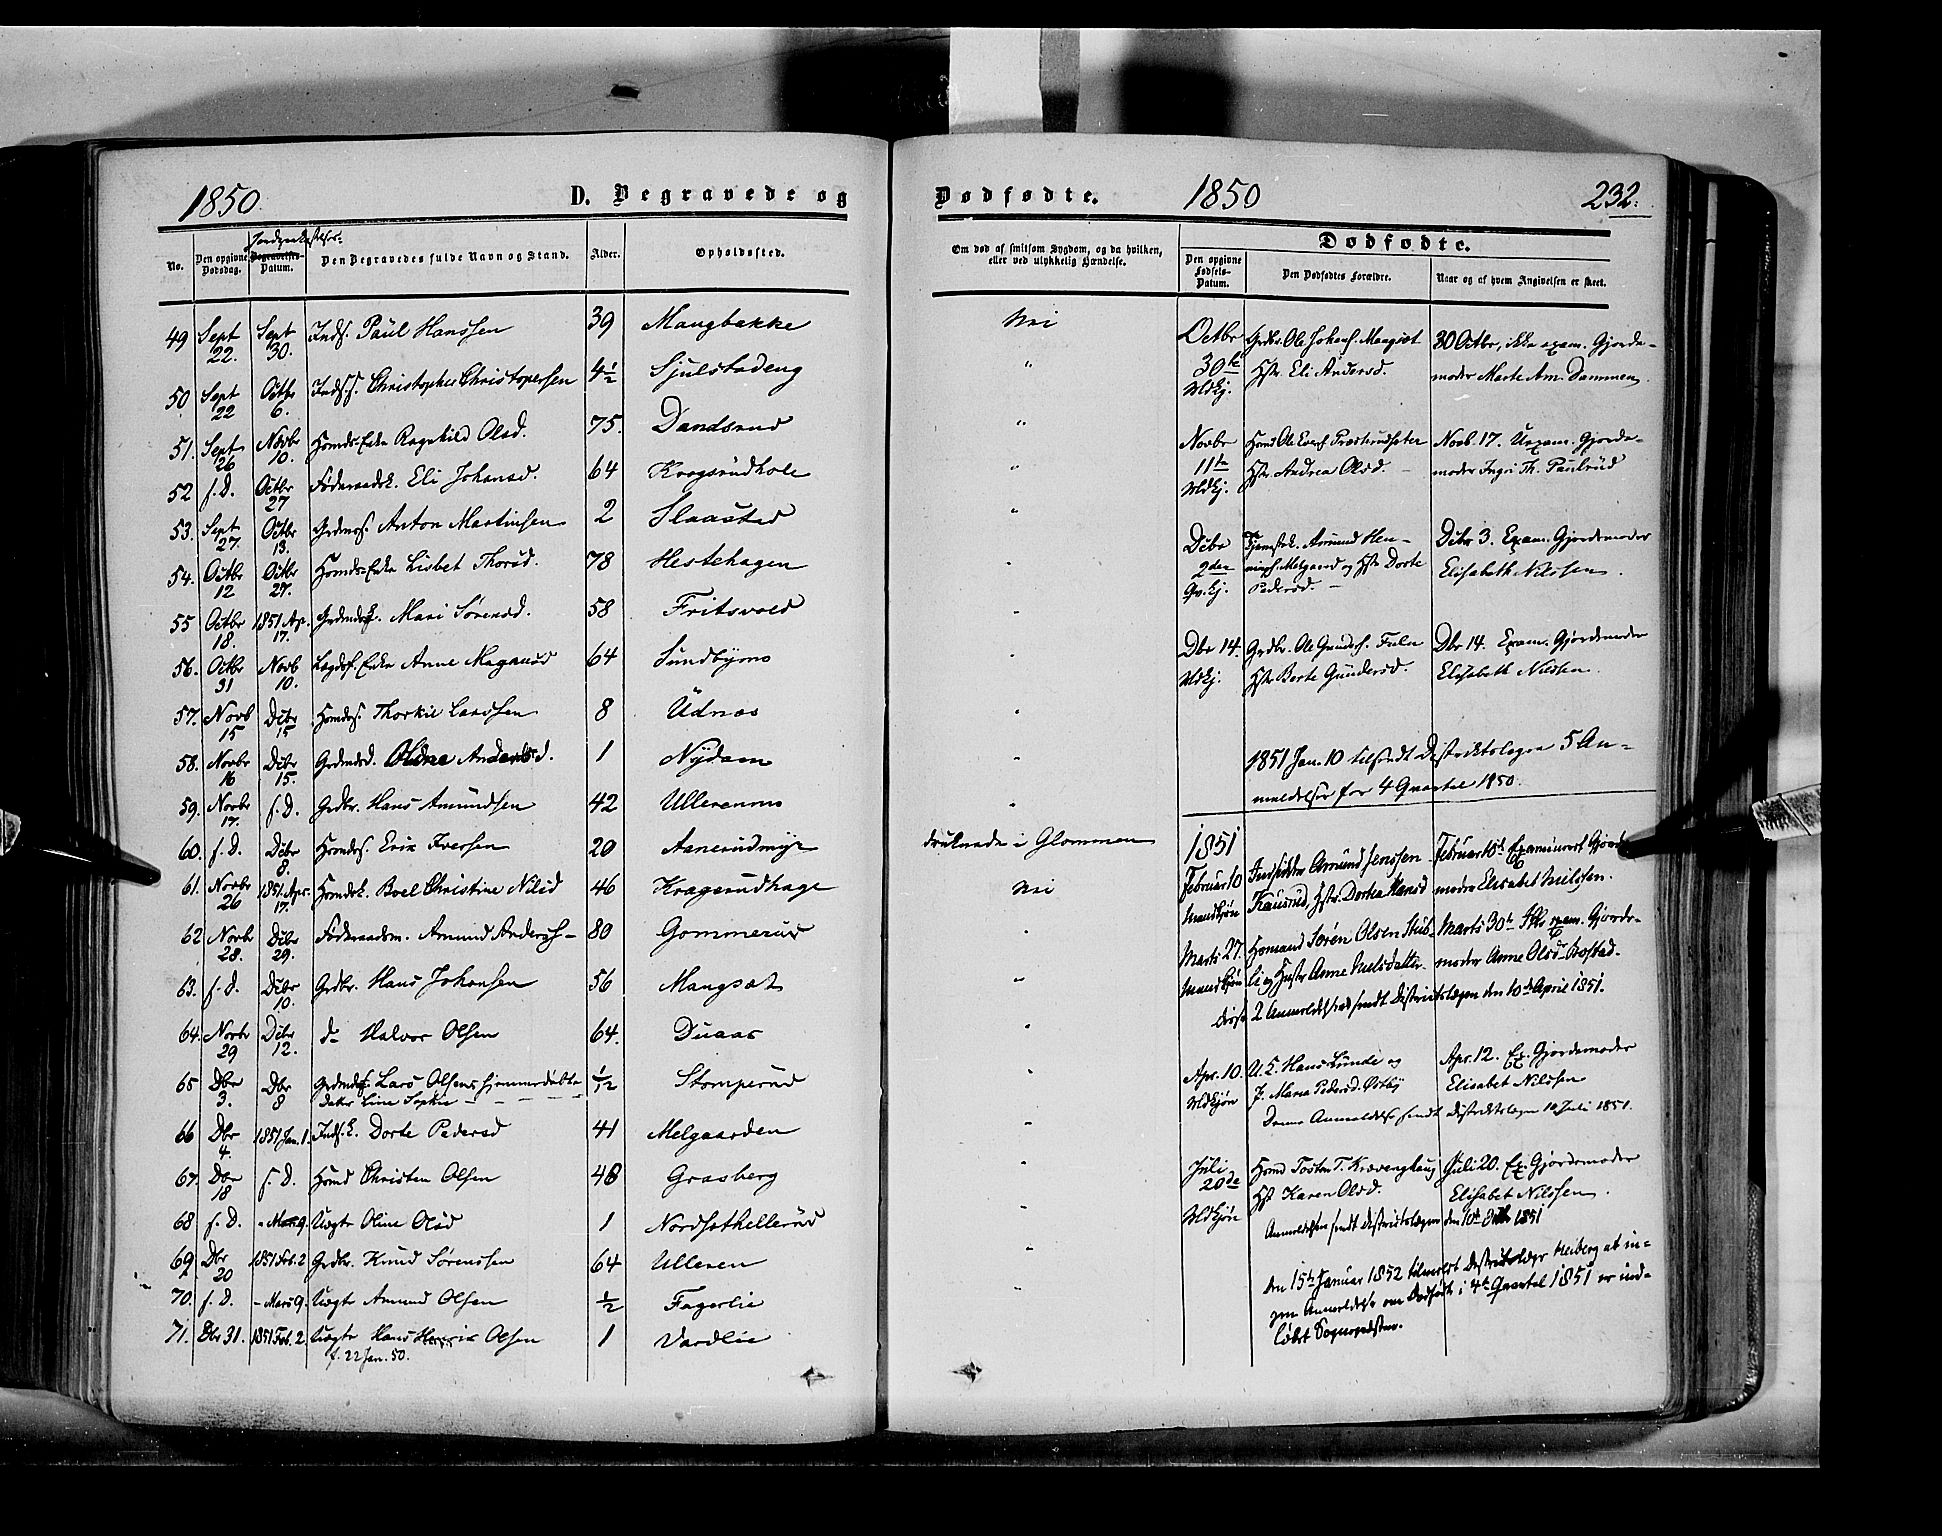 1850. D. Begravede og
No. Den opgivne Dødsdag. Jordpaakastelses- Begravelses-Datum. Den Begravedes fulde Navn og Stand. Alder. Opholdssted.
49 Sept 22. Sept 30. Inds. Paul Hanssen 39 Mangbakke
50 Sept 22 Octbr 6. Inds.s. Christopher Christopersen 4½ Sjulstadeng
51. Sept 26 Novbr 10. Hmds-Enke Ragnhild Olsd. 75. Dandsrud
52 s. D. Octbr 27 Føderaadsk. Eli Johansd. 64 Krogsrudhole
53. Sept 27. Octbr 13. Grdmds. Anton Martinsen 2 Slaastad
54. Octbr 12 Octbr 27. Hmds-Enke Lisbet Thorsd. 78 Hestehagen
55 Octbr 18. 1851 Ap. 17. Mari Sørensd. 58 Fritsvold
56. Octbr 31 Novb 10. Lægds. Enke Anne Magnusd 64 Sundbymo
57. Novb 15 Dcbr 15 Hmds. Thorkil Larssen 8 Udnæs
58. Novbr 16 Dcbr 15. Grdmdsd. Oldne Andersd. 1 Nydam
59. Novbr 17. s. D. Grdbr. Hans Amundsen 42 Ullerenmo
60. s. D. Dcbr 8. Hmds. Erik Iversen 20 Aanerudmyr
61. Novbr 26 1851 Apr. 17. Hmdsk. Boel Christine Nilsd 46 Kragsrudhage
62 Novbr 28. Dcbr 29. Føderaadsm. Amund Anders. 80 Gommerud
63. s. D. Dcbr 10. Grdbr. Hans Johansen 56 Mangset
64. Novbr 29 Dcbr 12. do Halvor Olsen 64. Duaas
65 Dbr 3. Dbr 8 Lars Olsens hjemmedøbte Datter Line Sophie 1/12 Stomperud
66 Dbr 4. 1851 Jan. 1. Inds.k. Dorte Pedersd 41 Melgaarden
67. Dbr 18 s. D. Hmd Christen Olsen 48 Grasberg
68 s. D. - Mars 9. Uægte Oline Olsd 1 Nordsethellerud
69 Dbr 20 1851 Feb. 2 Grdbr. Knud Sørenssen 64 Ulleren
70. s. D. - Mars 9. Uægte Amund Olsen ½ Fagerlie
71. Dbr 31. 1851 Feb. 2. Uægte Hans Henrik Olsen 1 Vardlie
f. 22 Jan. 50.
Dødfødte. 1850 232.
Om død af smitsom Sygdom, og da hvilken, eller ved ulykkelig Hændelse.
Dødfødte.
Den opgivne Fødsels-Datum. Den Dødfødtes Forældre. Naar og af hvem Angivelsen er skeet.
Nei
druknede i Glommen
Nei
Octbr 30te Mdkj. Grdbr. Ole Johans. Mangset Hstr. Eli Andersd. 30 Octbr, ikke exam. Gjordemoder Marte Am. Dammen
Novbr 11te Mdkj. Hmd Ole Evers. Præsterudseter Hstr. Andrea Olsd. Novb. 17. Uexam. Gjordemoder Ingri Th. Paulrud
Dcbr 2den Qv.kj. Tjenestek. Amund Hennings. Melgaard og Hstr Dorte Pedersd. Dcbr 3. Exam. Gjordemoder Elisabeth Nilssen.
Dbr 14. Mdkj. Grdbr. Ole Gunders. Fulu Hstr Berte Gundersd. Dbr 14. Exam. Gjordemoder Elisabeth Nilssen.
1851 Jan. 10 tilsendt Distriktslægen 5 Anmeldelser for 4 Quartal 1850.
1851
Februar 10 Mandkjøn Indsidder Amund Jenssen Kausrud, Hstr. Dorthea Hansd Februar 16 Examineret Gjordemoder Elisabet Nilssen.
Marts 27. Mandkjøn Husmand Søren Olsen Stubli og Hustr Anne Nielsdatter. Marts 30te Ikke exam. Gjordemoder Anne Olsd
disse 2 Anmeldelser sendt Districtslægen den 10de April 1851.
Apr. 10. Mdkjøn U. C. Hans Lunde og P. Maria Pedersd. Østby Apr. 12. Ex. Gjordemoder Elisabet Nilssen
Denne Anmeldelse sendt Districtslægen 10 Juli 1851.
Juli 20de Mdkjøn Hmd Tosten T. Kravenghaug Hst Karen Olsd. Juli 20. Ex. Gjordemoder Elisabet Nilssen.
Anmeldelsen sendt Districtslægen den 10de Octbr 1851
Den 15de Januar 1852 tilmeldt Districtslæge Heiberg at ingen Anmeldelse om Dødfødte i 4de Quartal 1851 er indløbet Sognepræsten.